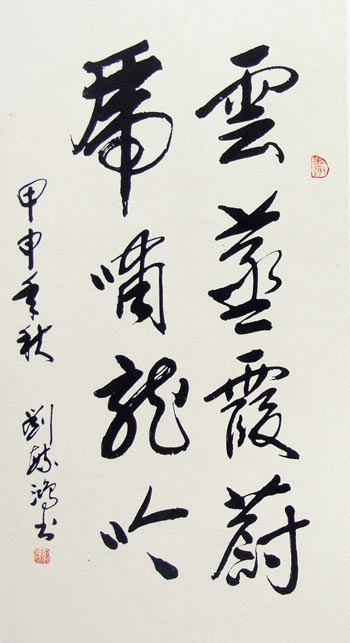 雲蒸霞蔚
虎嘯龍吟
甲申年秋 劉鴻書